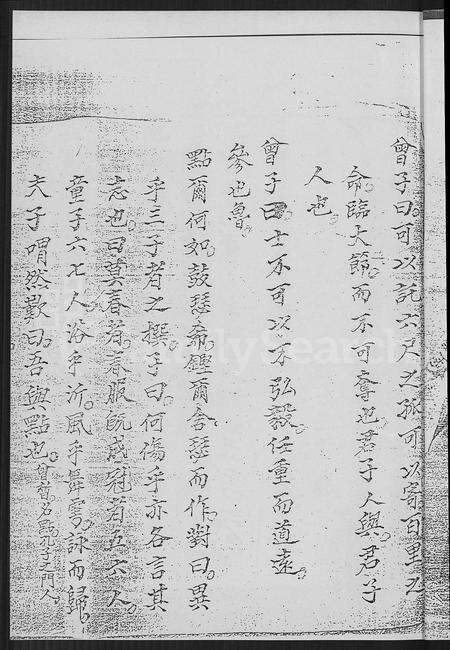 曾子曰。可以託六尺之孤可以寄百里之
命。臨大節。而不可奪也。君子人與。君子
人也。
曾子曰。士不可以不弘毅。任重而道遠。
參也魯。
點爾何如。鼓瑟希。鏗爾舍瑟而作。對曰。異
乎三子者之撰。子曰。何傷乎亦各言其
志也。曰莫春者。春服既成冠者五六人。
童子六七人浴乎沂。風乎舞雩。詠而歸。
夫子喟然歎曰。吾與點也。曾晳名點孔子之門人。
FamilySearch